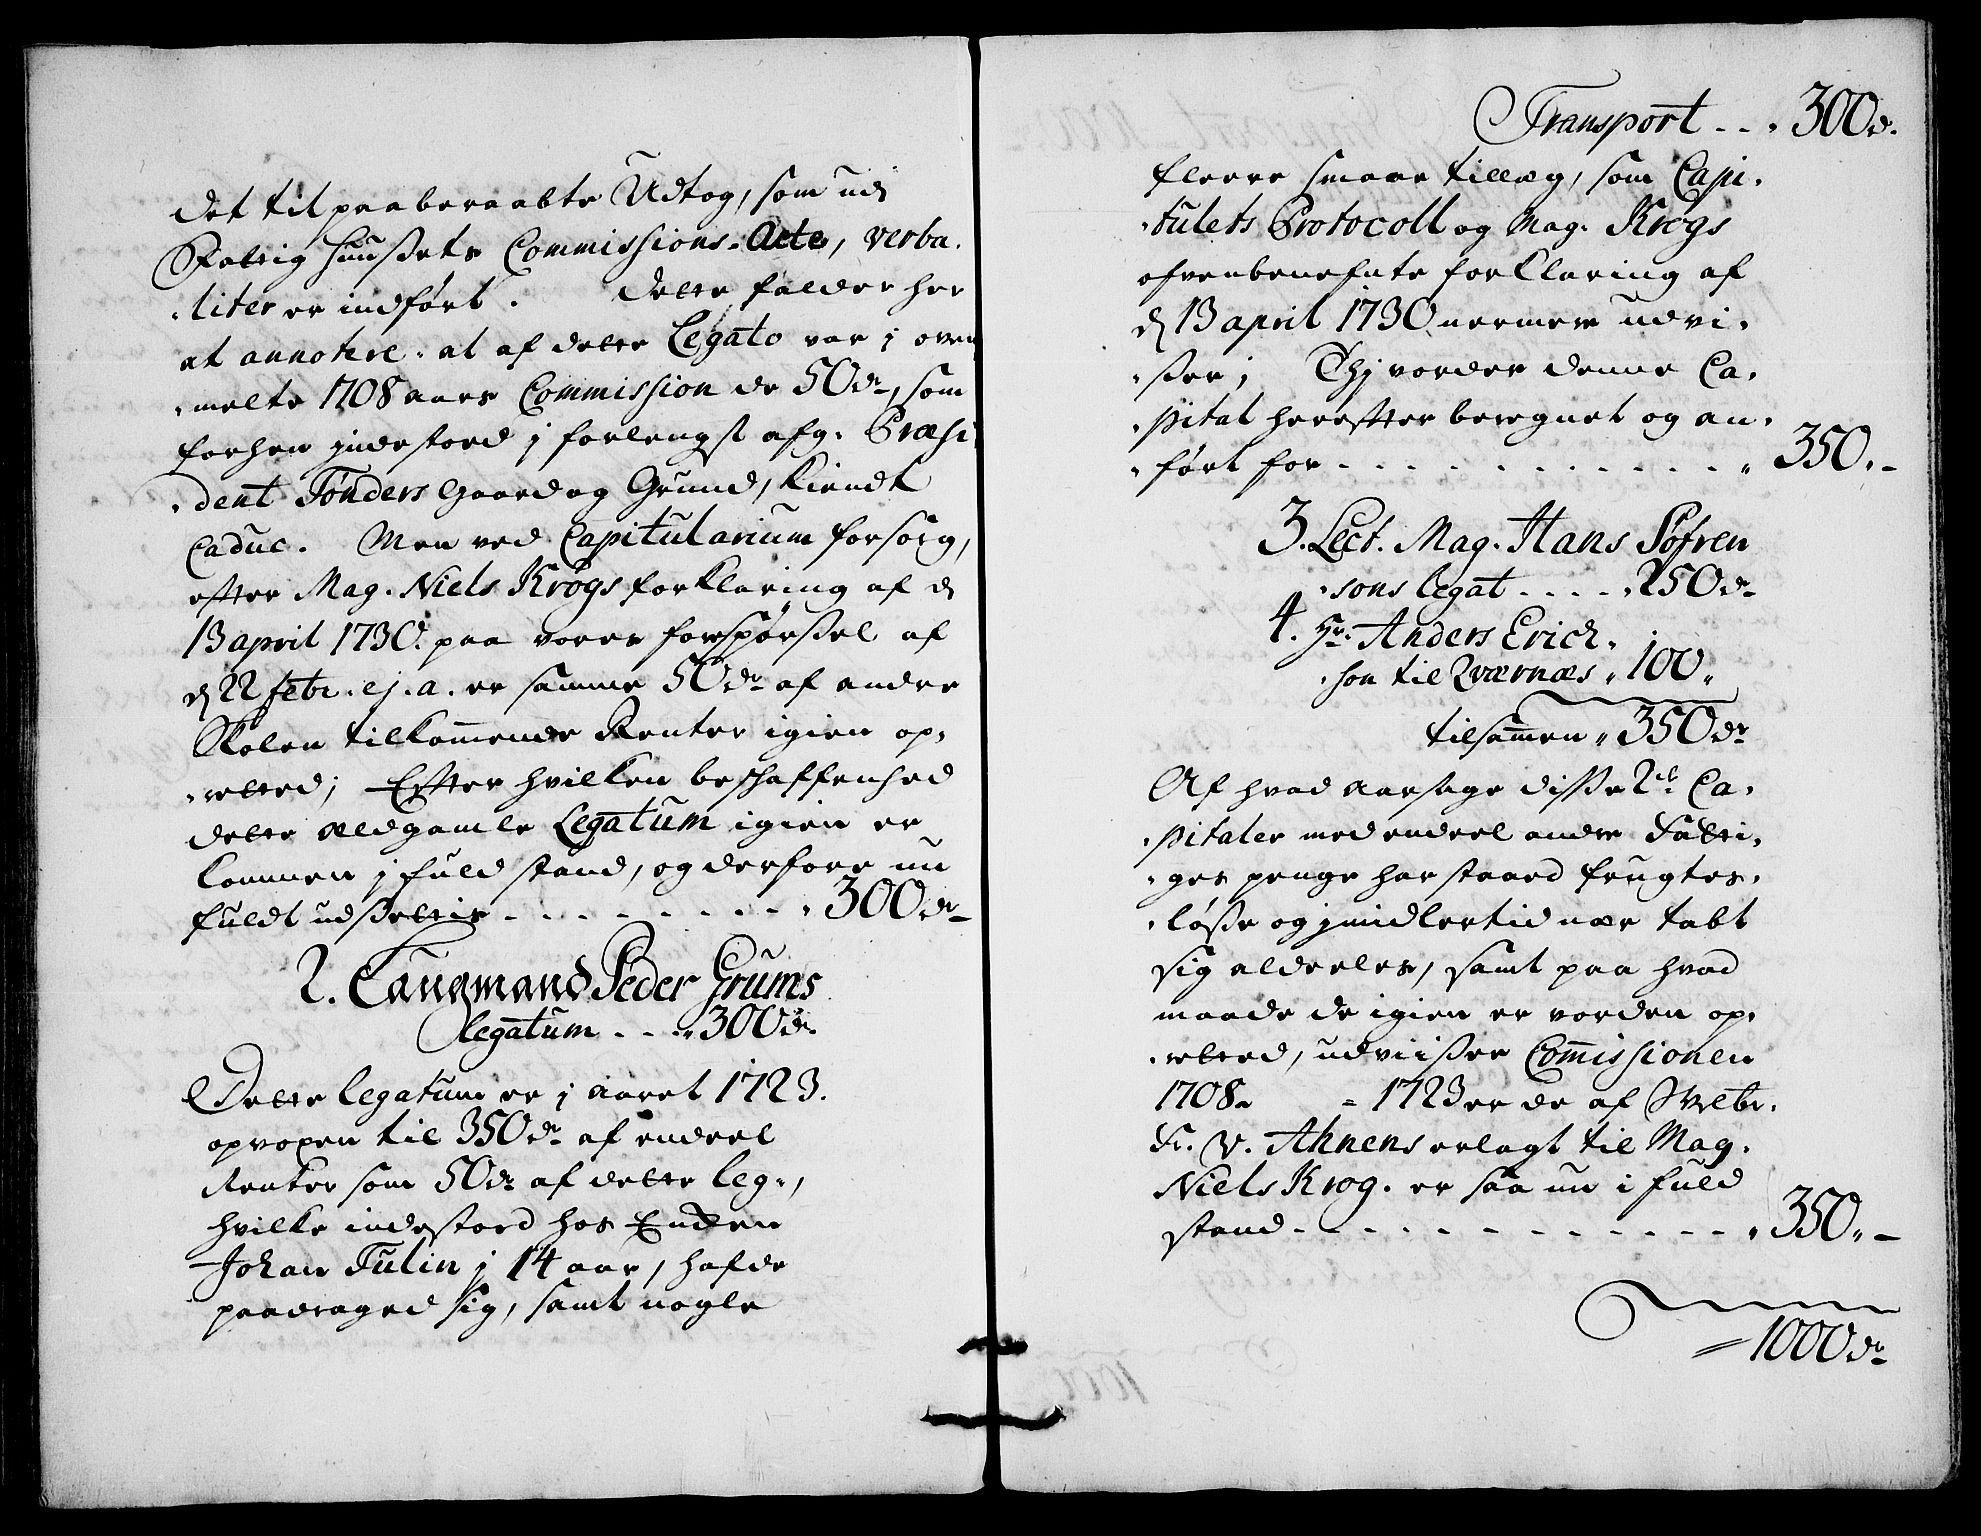 det til paaberaabte Udtog, som udj
Fattig Huusets Commissions-Acte, verba-
-liter er indført. Dette falder her
at annotere. at af dette Legato var j oven
-melte 1708 aars Commission de 50 dr, som
forhen jndestoed j forlengst afg. Præsi-
-dent Tønders gaard og Grund, kiendt
caduc. Men ved Capitularium forsorg,
efter Mag. Niels Krøgs forklaring af d
13 april 1730. paa vores forspørsel af
d 22 febr. ej. a. er samme 50 dr af andre
Skolen tilkommende Renter igien op-
-retted; Efter hvilken beskaffenhed
dette ældgamle Legatum igien er
kommen j fuld stand, og derfore nu
fuldt udsettis - - - - - - - - 300 dr
2. Laugmand Peder Grums
legatum - - - 300 dr
Dette legatum er j aaret 1723.
opvoxen til 350 dr af endeel
Renter som 50 dr af dette leg.,
hvilke indestoed hos Enken
Johan Tulin j 14 aar, hafde
paadraged sig, samt nogle
Transport - - - 300 d.
fleere smaae tillæg, som Capi-
-tulets Protocoll og Mag. Krøgs
ofvenbenefnte forklaring af
d 13 april 1730 nermere udvi-
-ser; Thj vorder denne Ca-
-pital herefter beregnet og an-
-ført for - - - - - - - - - - 350. -
3. Lect. Mag. Hans Søfren
-sons legat - - - - 250 dr
4. Hr. Anders Erich-
-søn til Qværnæs 100.
tilsammen 350 dr
Af hvad aarsage disse 2de Ca-
-pitaler med endeel andre Fatti-
-ges penge har staaed frugtes-
-løse og jmidlertid nær tabt
sig aldeeles, samt paa hvad
maade de igien er vorden op-
-retted, udviiser Commissionen
1708. - 1723 er de af Velbr.
Fr. V. Ahnens erlagt til Mag.
Niels Krog. er saa nu i fuld
stand - - - - - - - - - - - 350. -
1000 dr